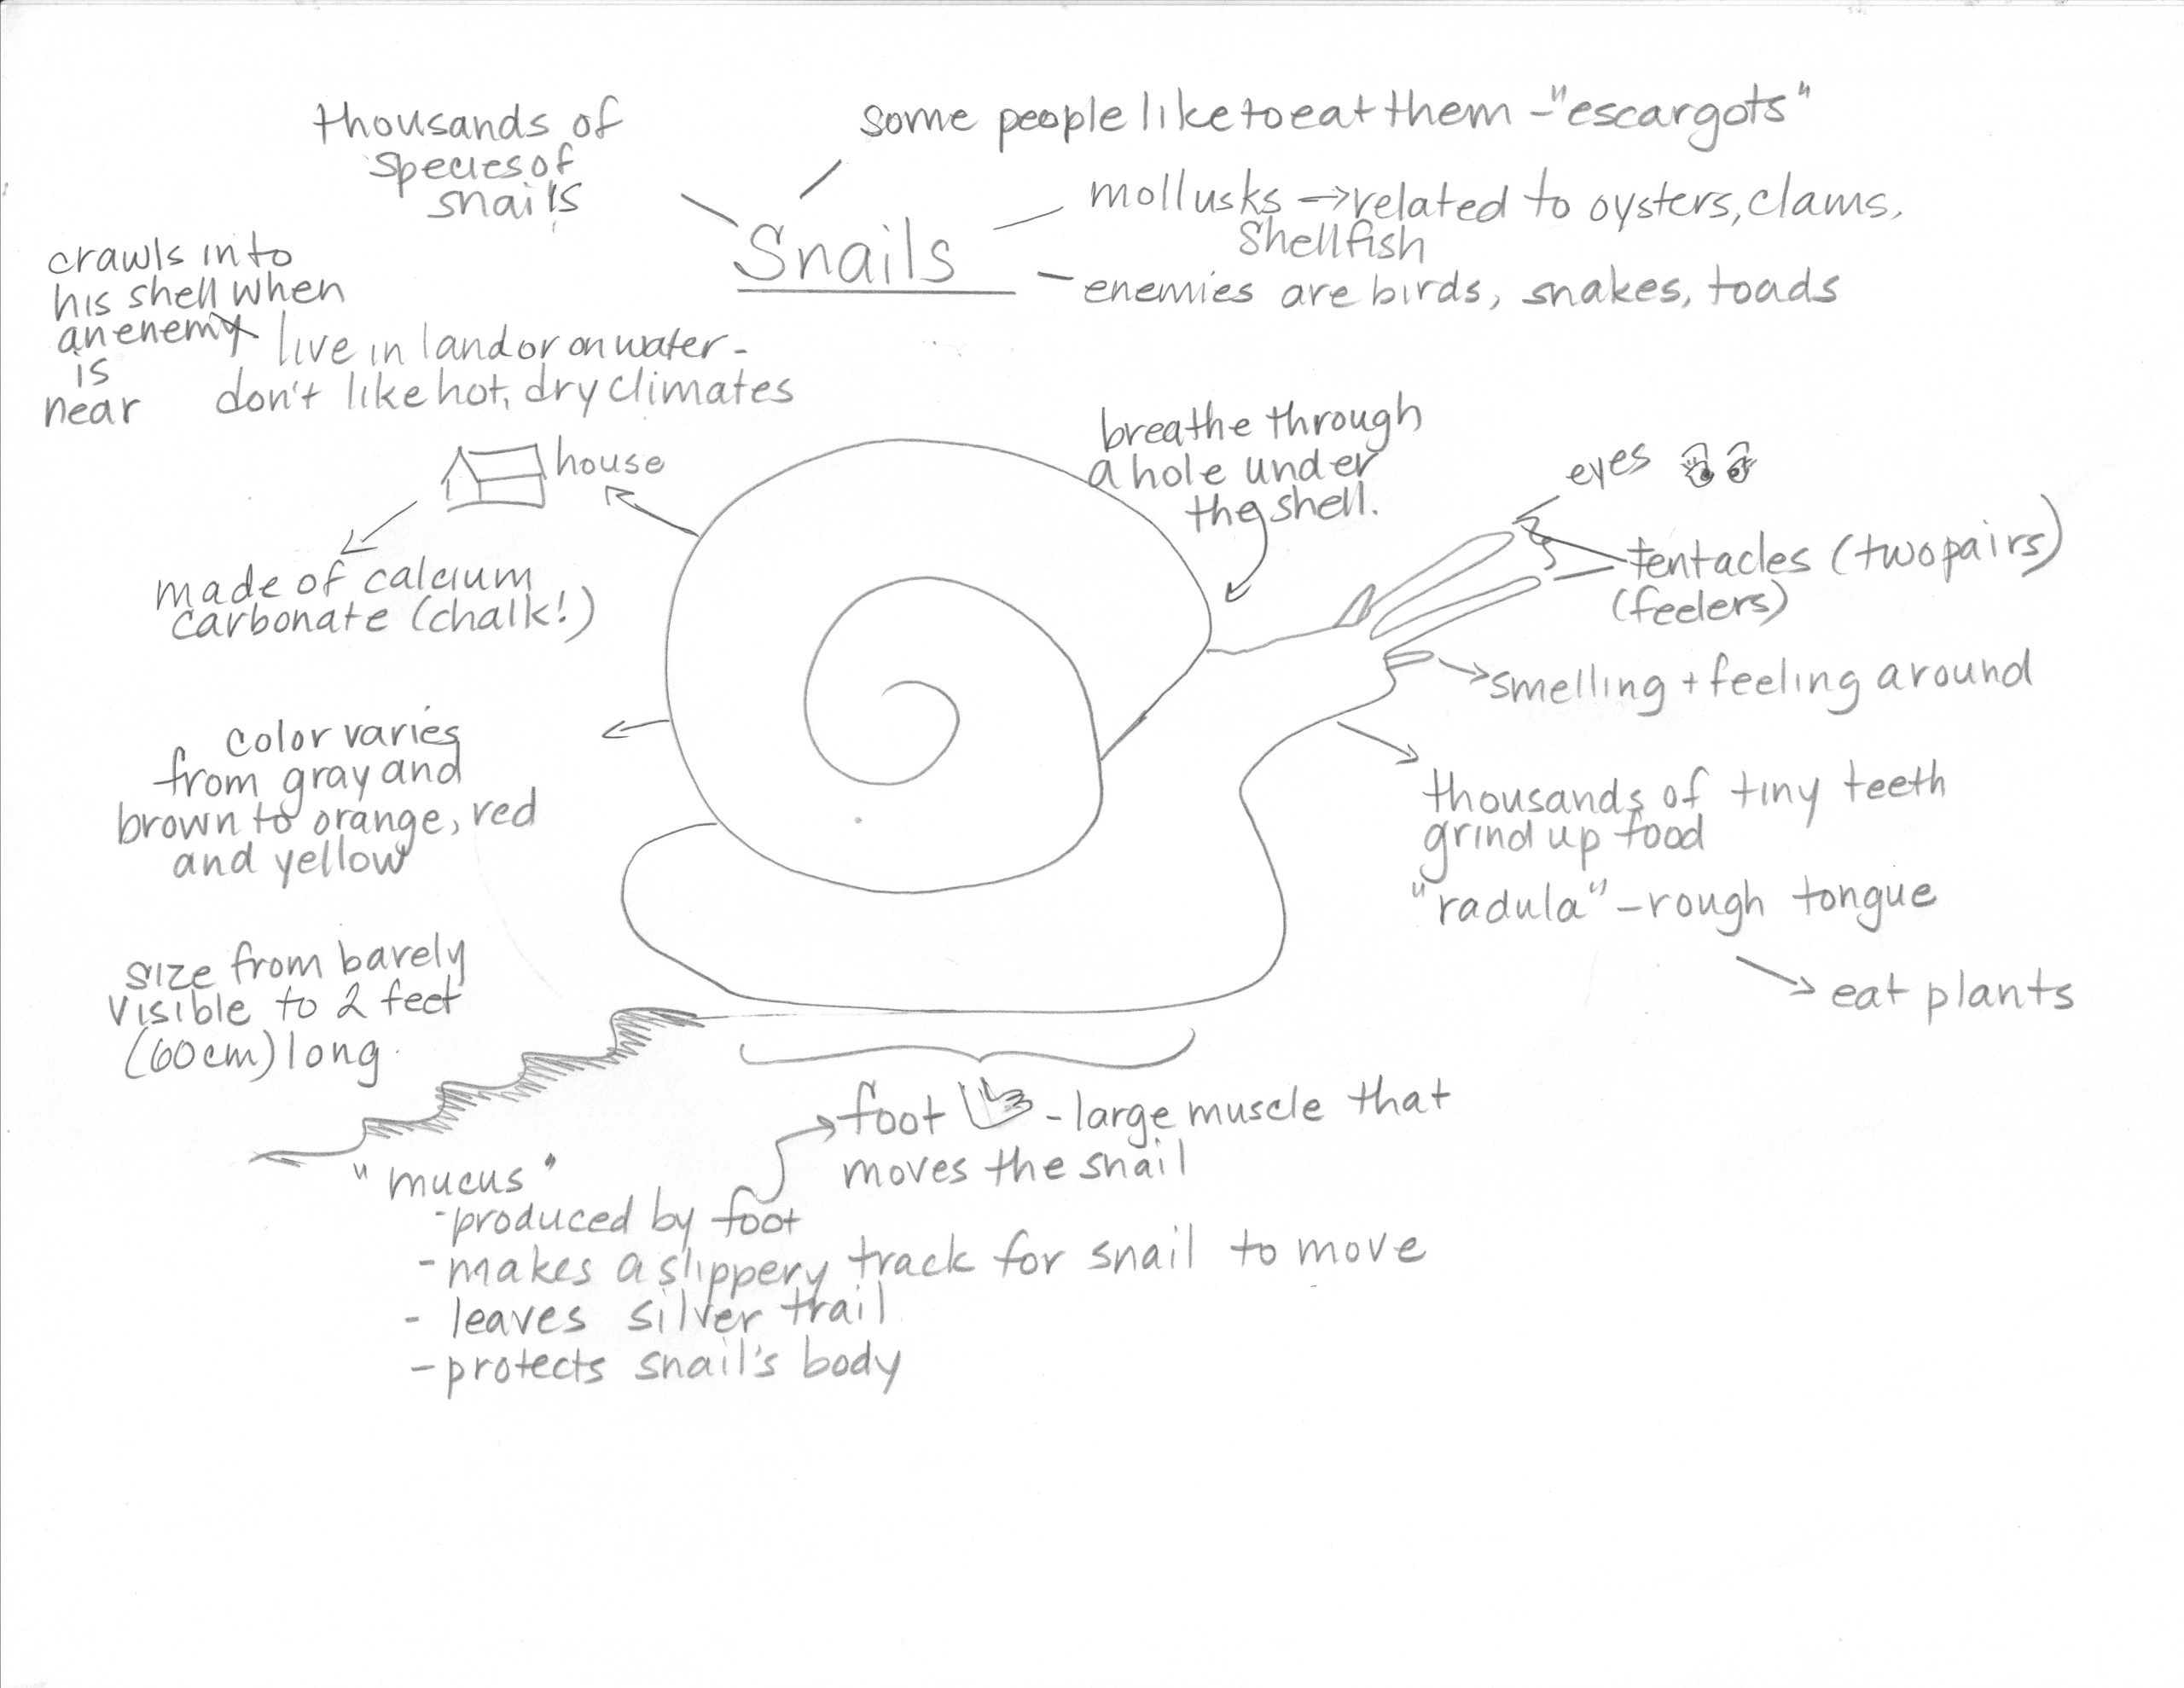 thousands of
species of
snails
some people like to eat them - "escargots"
mollusks → related to oysters, clams,
shellfish
Snails
enemies are birds, snakes, toads
crawls into
his shell when
an enemy
is
near
live in land or on water -
don't like hot, dry climates
house
made of calcium
carbonate (chalk!)
breathe through
a hole under
the shell.
eyes
tentacles (two pairs)
(feelers)
smelling + feeling around
color varies
from gray and
brown to orange, red
and yellow
thousands of tiny teeth
grind up food
"radula" - rough tongue
eat plants
size from barely
visible to 2 feet
(60 cm) long.
foot - large muscle that
moves the snail
"mucus"
- produced by foot
- makes a slippery track for snail to move
- leaves silver trail
- protects snail's body